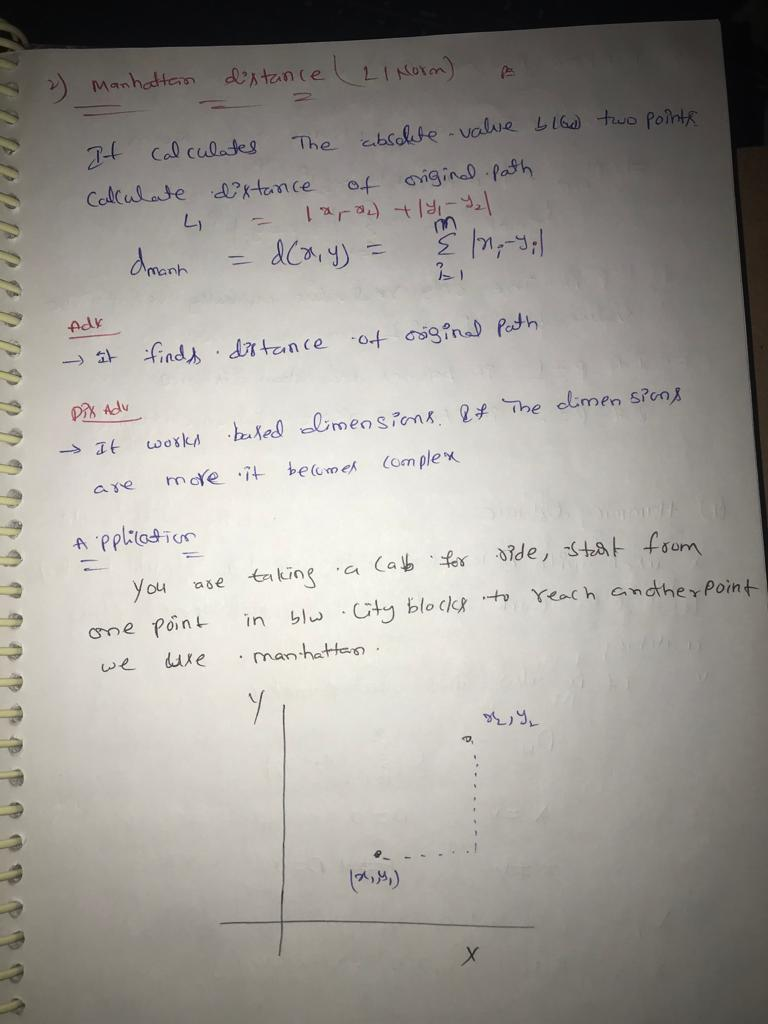 2) Manhattan distance (L1 Norm)
It calculates The absolute value b/w two points
Calculate distance of original path
L₁ = |x₁-x₂) + |y₁-y₂|
dmanh = d(x,y) = m Σ i=1 |xi-yi|
Adv
→ it finds distance of original path
Dis Adv
→ It works based dimensions. If The dimensions
are more it becomes complex
Application
You are taking a Cab for ride, start from
one point in b/w City blocks to reach another point
we use manhattan.
Y
x₂, y₂
(x₁, y₁)
X